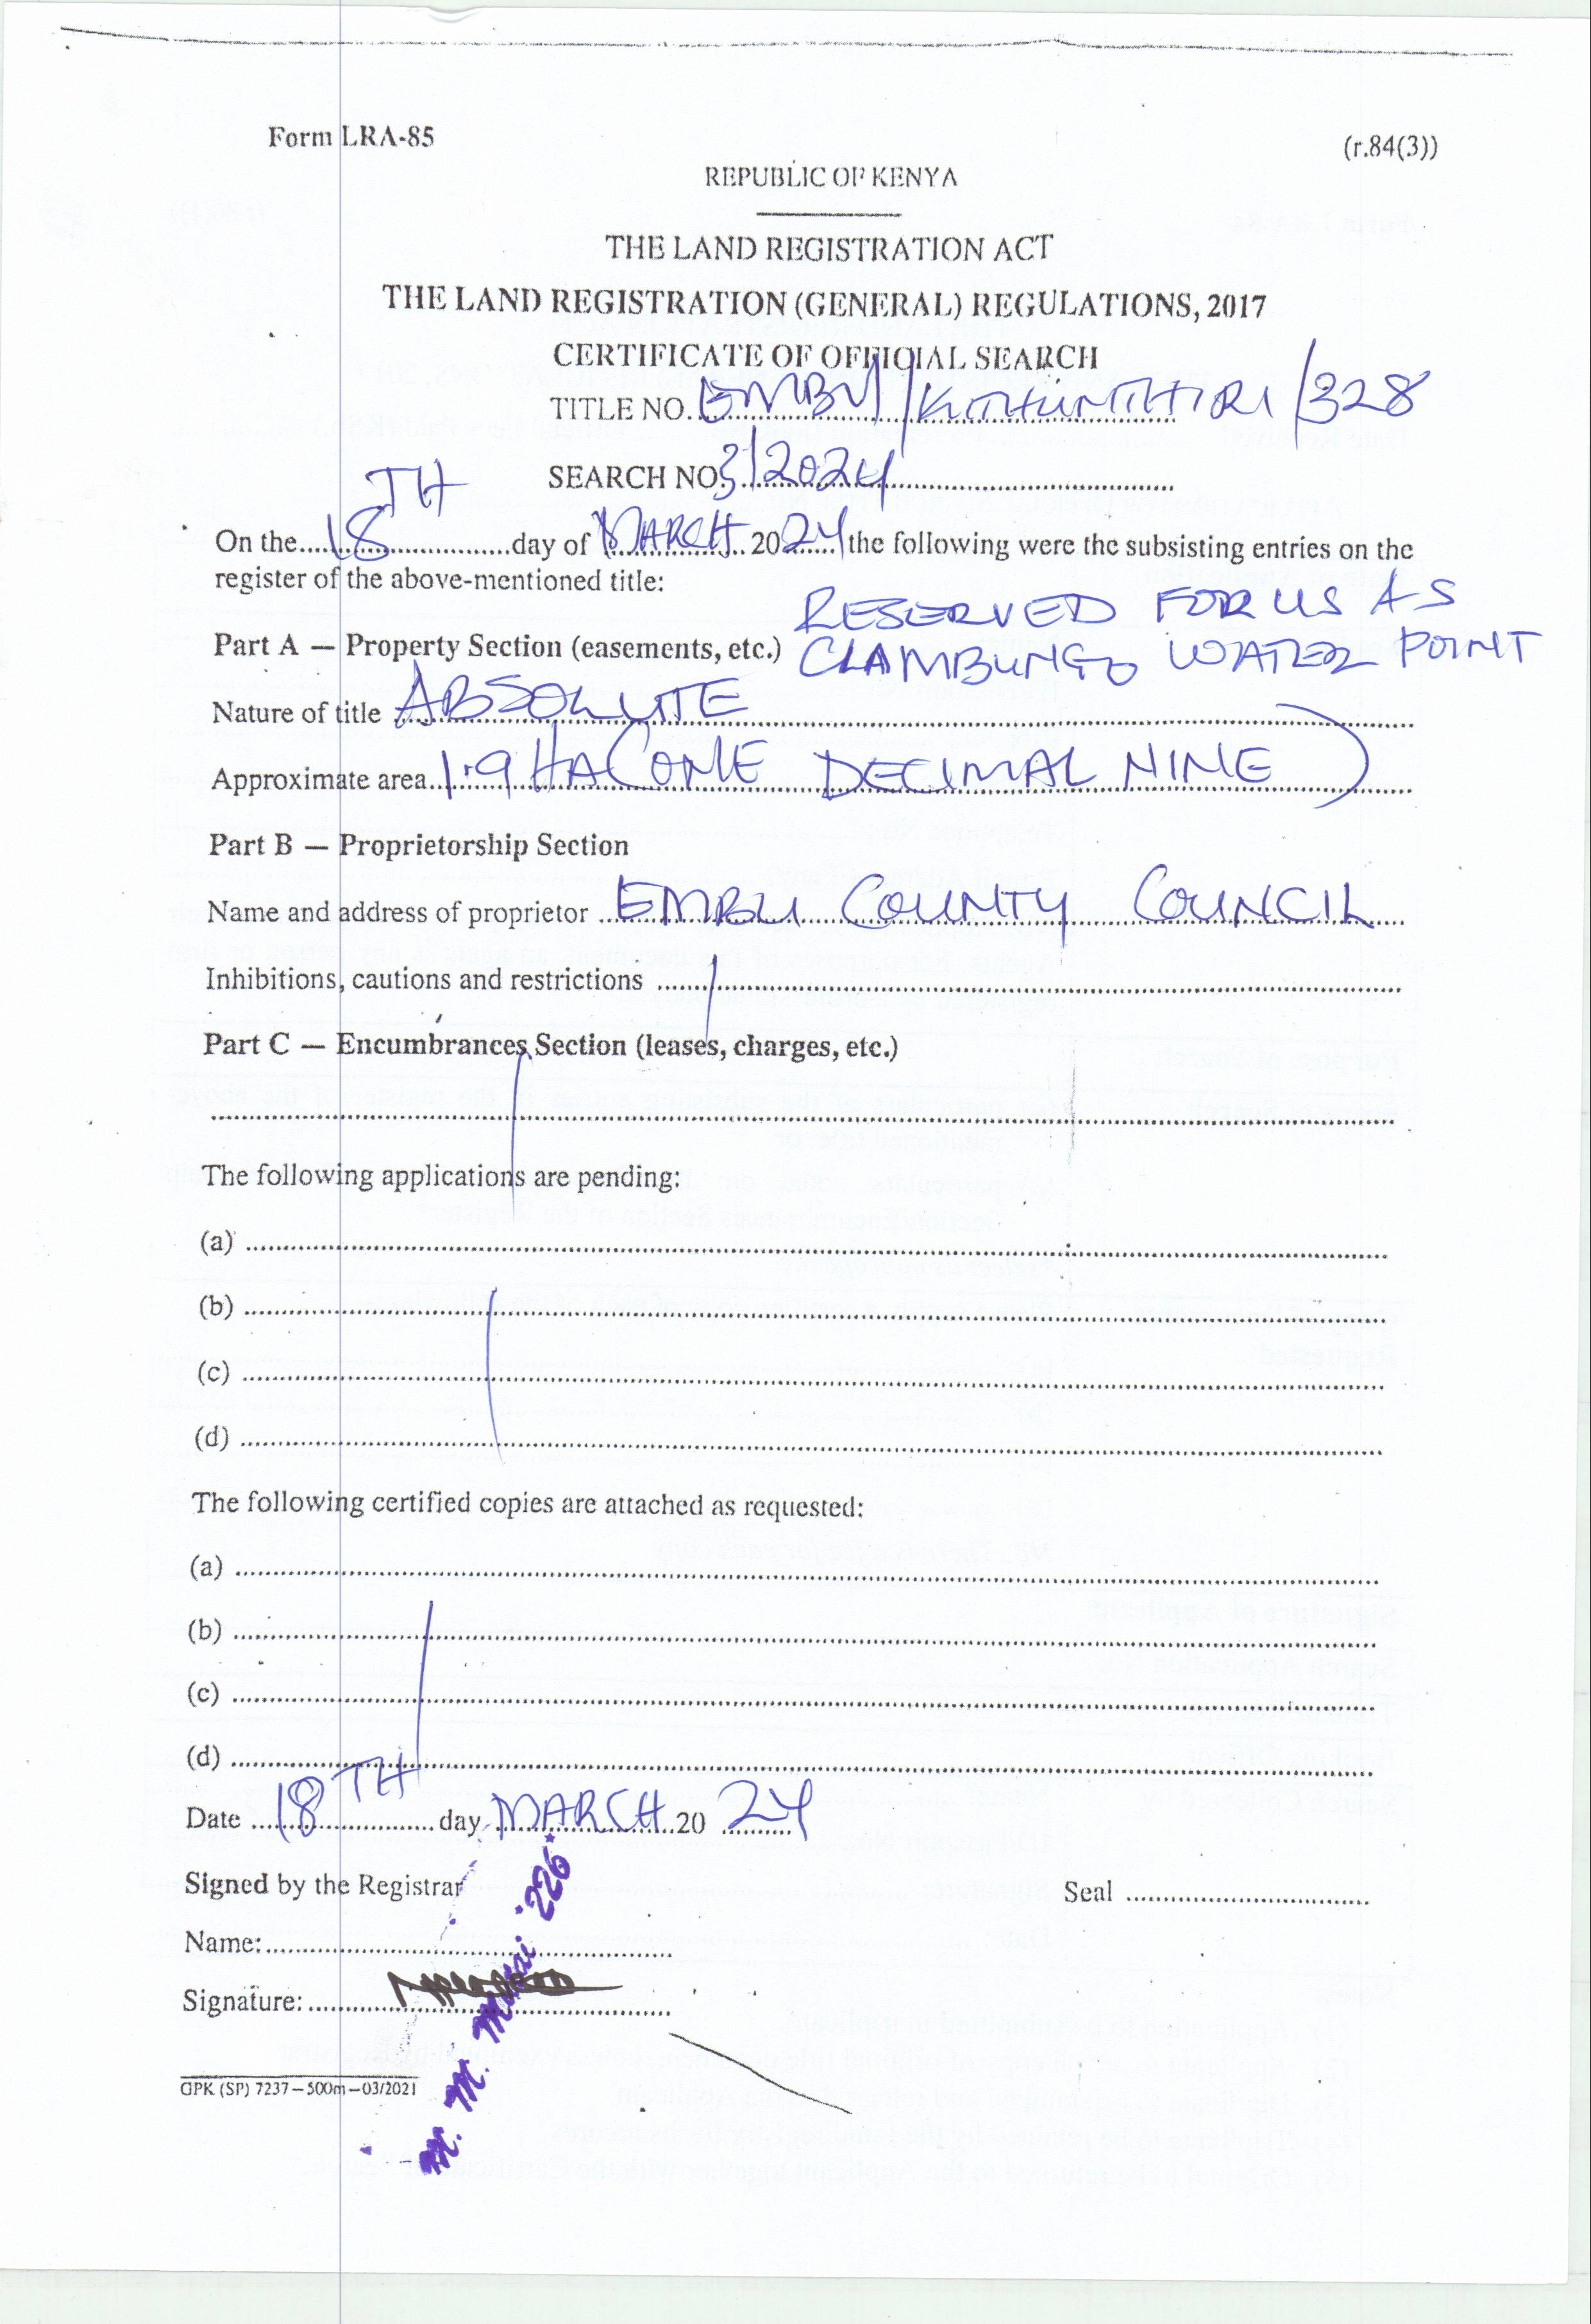 Form LRA-85
(r.84(3))
REPUBLIC OF KENYA
THE LAND REGISTRATION ACT
THE LAND REGISTRATION (GENERAL) REGULATIONS, 2017
CERTIFICATE OF OFFICIAL SEARCH
TITLE NO. EMBU/KITHUNTHIRI/328
SEARCH NO. 3/2024
On the 18TH day of MARCH 2024 the following were the subsisting entries on the
register of the above-mentioned title:
RESERVED FOR US AS
Part A — Property Section (easements, etc.) CLAMBUNG WATER POINT
Nature of title ABSOLUTE
Approximate area 1.9 HA (ONE DECIMAL NINE)
Part B — Proprietorship Section
Name and address of proprietor EMBU COUNTY COUNCIL
Inhibitions, cautions and restrictions
Part C — Encumbrances Section (leases, charges, etc.)
The following applications are pending:
(a)
(b)
(c)
(d)
The following certified copies are attached as requested:
(a)
(b)
(c)
(d)
Date 18TH day MARCH 2024
Signed by the Registrar
Seal
Name:
Signature:
M. M. 226
GPK (SP) 7237—500m—03/2021